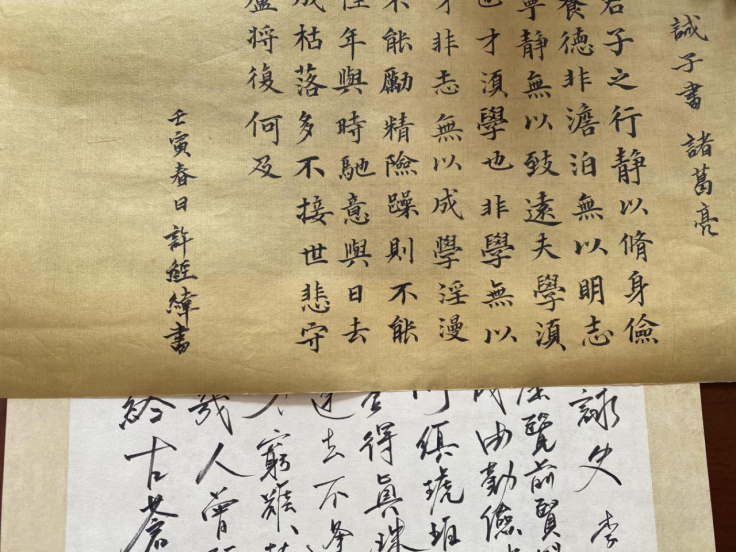 誡子書 諸葛亮
君子之行静以脩身儉
養德非澹泊無以明志
寧静無以致遠夫學湏
也才湏學也非學無以
才非志無以成學淫漫
不能勵精險躁則不能
性年與時馳意與日去
成枯落多不接世悲守
廬將復何及
壬寅春日 許經緯書
詠史 李
歷覽前賢
成由勤儉
琥珀
得真珠
去不逢
窮難
幾人曾
終古蒼